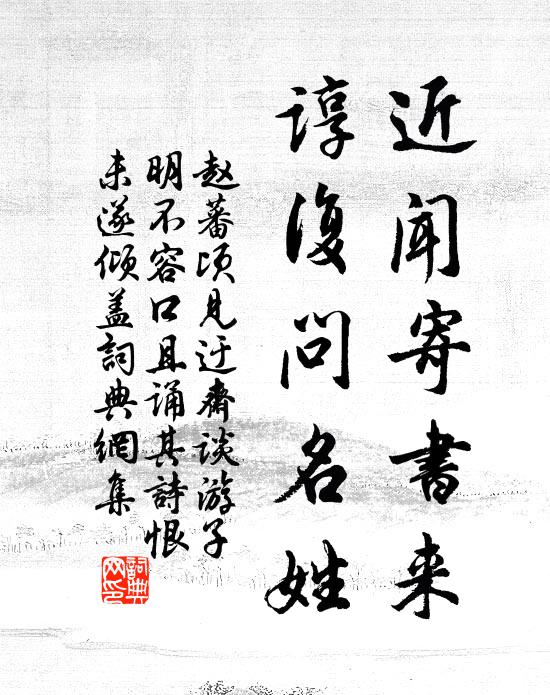 近闻寄书来
谆复问名姓
赵蕃顷见迂齋谈游子
明不容口且诵其詩恨
未遂倾盖詞典網集
詞典
网印